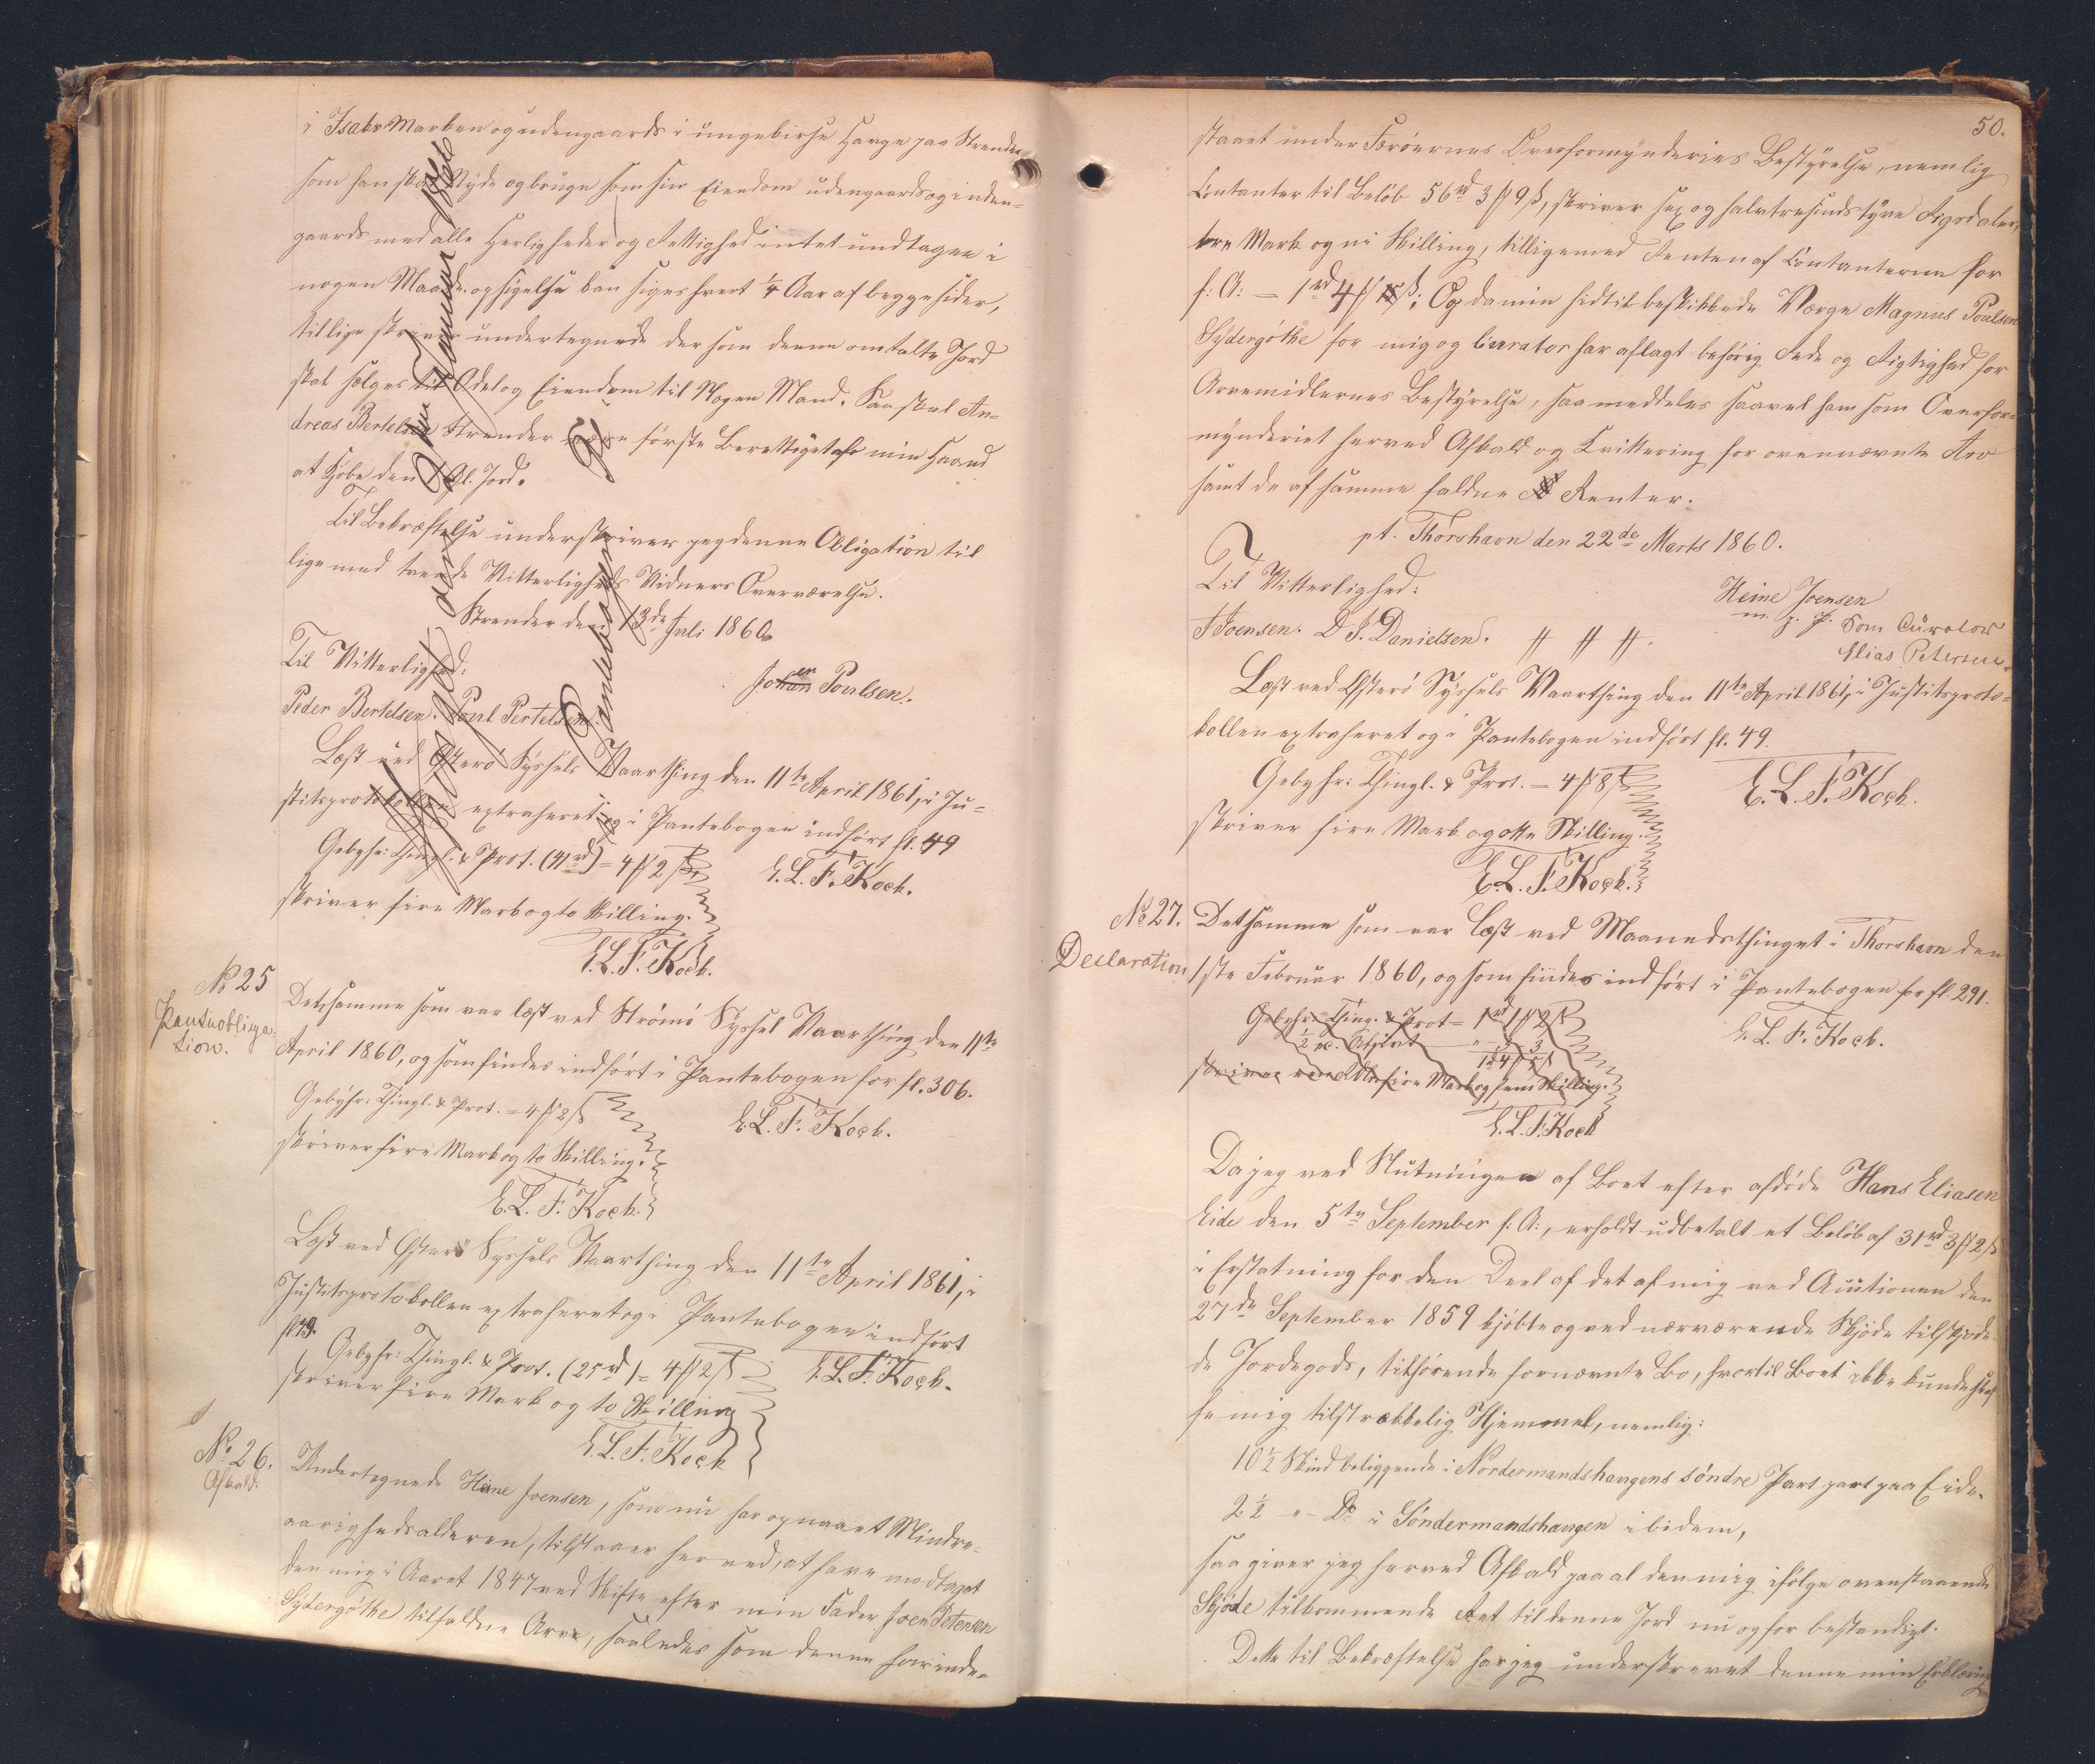 i Isaks Marken og udengaards i ungebirse Hauge paa Strender
som han skal Nyde og bruge som sin Eiendom udengaards og inden-
gaards med alle Herligheder og Rettighed intet undtagen i
nogen Maade. opsigelse kan siges hvert 1/4 Aar af begge sider,
tillige skriver undertegnede der som denne omtalte Jord
skal sælges til Odel og Eiendom til Nogen Mand. Saa skal An-
dreas Bertelsen Strender være første Berettiget afr min Haand
at Kjøbe den Gl. Jord.
Til Bekræftelse underskriver jeg denne Obligation til
lige med tvende Vitterligheds Vidners Overværelse.
Strender den 13de Juli 1860.
Til Vitterlighed:
Johan Poulsen.
Peder Bertelsen. Poul Pertelsen.
Læst ved Østerø Syssels Vaarthing den 11te April 1861, i Ju-
stitsprotokollen extraheret og i Pantebogen indført fl. 49
Gebyhr: Thingl. & Prot. (41rd) = 4 ₰ 2 ß
E. L. F. Koch.
skriver fire Mark og to Skilling.
E. L. F. Koch.
No 25
Pantsobliga-
tion.
Detsamme som var læst ved Strømø Syssel Vaarthing den 11te
April 1860, og som findes indført i Pantebogen for fl. 306.
Gebyhr: Thingl. & Prot. = 4 ₰ 2 ß
E. L. F. Koch.
skriver fire Mark og to Skilling.
E. L. F. Koch.
Læst ved Østerø Syssels Vaarthing den 11te April 1861, i
Justitsprotokollen extraheret og i Pantebogen indført
fl 49.
Gebyhr: Thingl. & Prot. (25rd) = 4 ₰ 2 ß
E. L. F. Koch.
skriver fire Mark og to Skilling
E. L. F. Koch
No 26.
Afkald.
Undertegnede Heine Joensen, som nu har opnaaet Mindre-
aarighedsalderen, tilstaaer herved, at have modtaget
den mig i Aaret 1847 ved Skifte efter min Fader Joen Petersen
Sydergøthe tilfaldne Arv, saaledes som denne har inde-
50.
staaet under Færøernes Overformynderies Bestyrelse, nemlig
Contanter til Beløb 56rd 3 ₰ 9 ß, skriver sex og halvtresindstyve Rigsdaler,
tre Mark og ni Skilling, tilligemed Renten af Contanterne for
f: A: — 1rd 4 ₰ ß; Og da min hidtil beskikkede Værge Magnus Poulsen
Sydergøthe for mig og Curator har aflagt behørig Rede og Rigtighed for
Arvemidlernes Bestyrelse, saa meddeles saavel ham som Overfor-
mynderiet herved Afkald og Kvittering for ovennævnte Arv
samt de af samme faldne Renter.
pt. Thorshavn den 22de Marts 1860.
Til Vitterlighed:
Heine Joensen
m. p. P. Som Curator
J Joensen. D J. Danielsen.
Elias Petersen.
Læst ved Østerø Syssels Vaarthing den 11te April 1861, i Justitsproto-
kollen extraheret og i Pantebogen indført fl. 49.
Gebyhr: Thingl. & Prot. = 4 ₰ 8 ß
E. L. F. Koch.
skriver fire Mark og otte Skilling.
E. L. F. Koch.
No 27.
Declaration
Detsamme som var læst ved Maanedsthinget i Thorshavn den
1ste Februar 1860, og som findes indført i Pantebogen for fl. 291.
Gebyhr: Thing. & Prot = 1rd 1 ₰ 2 ß
E. L. F. Koch.
1/2 pc. Afgivt — " - 3 3
1rd 4 ₰ 5 ß
skriver een Rdlr fire Mark og fem Skilling.
E. L. F. Koch
Da jeg ved Slutningen af Boet efter afdøde Hans Eliasen
Eide den 5te September f: A:, erholdt udbetalt et Beløb af 31rd 3 ₰ 2 ß
i Erstatning for den Deel af det af mig ved Auctionen den
27de September 1859 kjøbte og ved nærværende Skjøde tilskjøde-
de Jordegods, tilhørende fornævnte Bo, hvortil Boet ikke kunde skaf-
fe mig tilstrækkelig Hjemmel, nemlig:
10 1/2 Skind beliggende i Nordermandshaugens søndre Part part paa Eide.
2 1/2 " - Do i Søndermandshaugen ibidem,
saa giver jeg herved Afkald paa al den mig ifølge ovenstaaende
Skjøde tilkommende Ret til denne Jord nu og for bestandigt.
Dette til Bekræftelse har jeg underskrevet denne min Erklæring